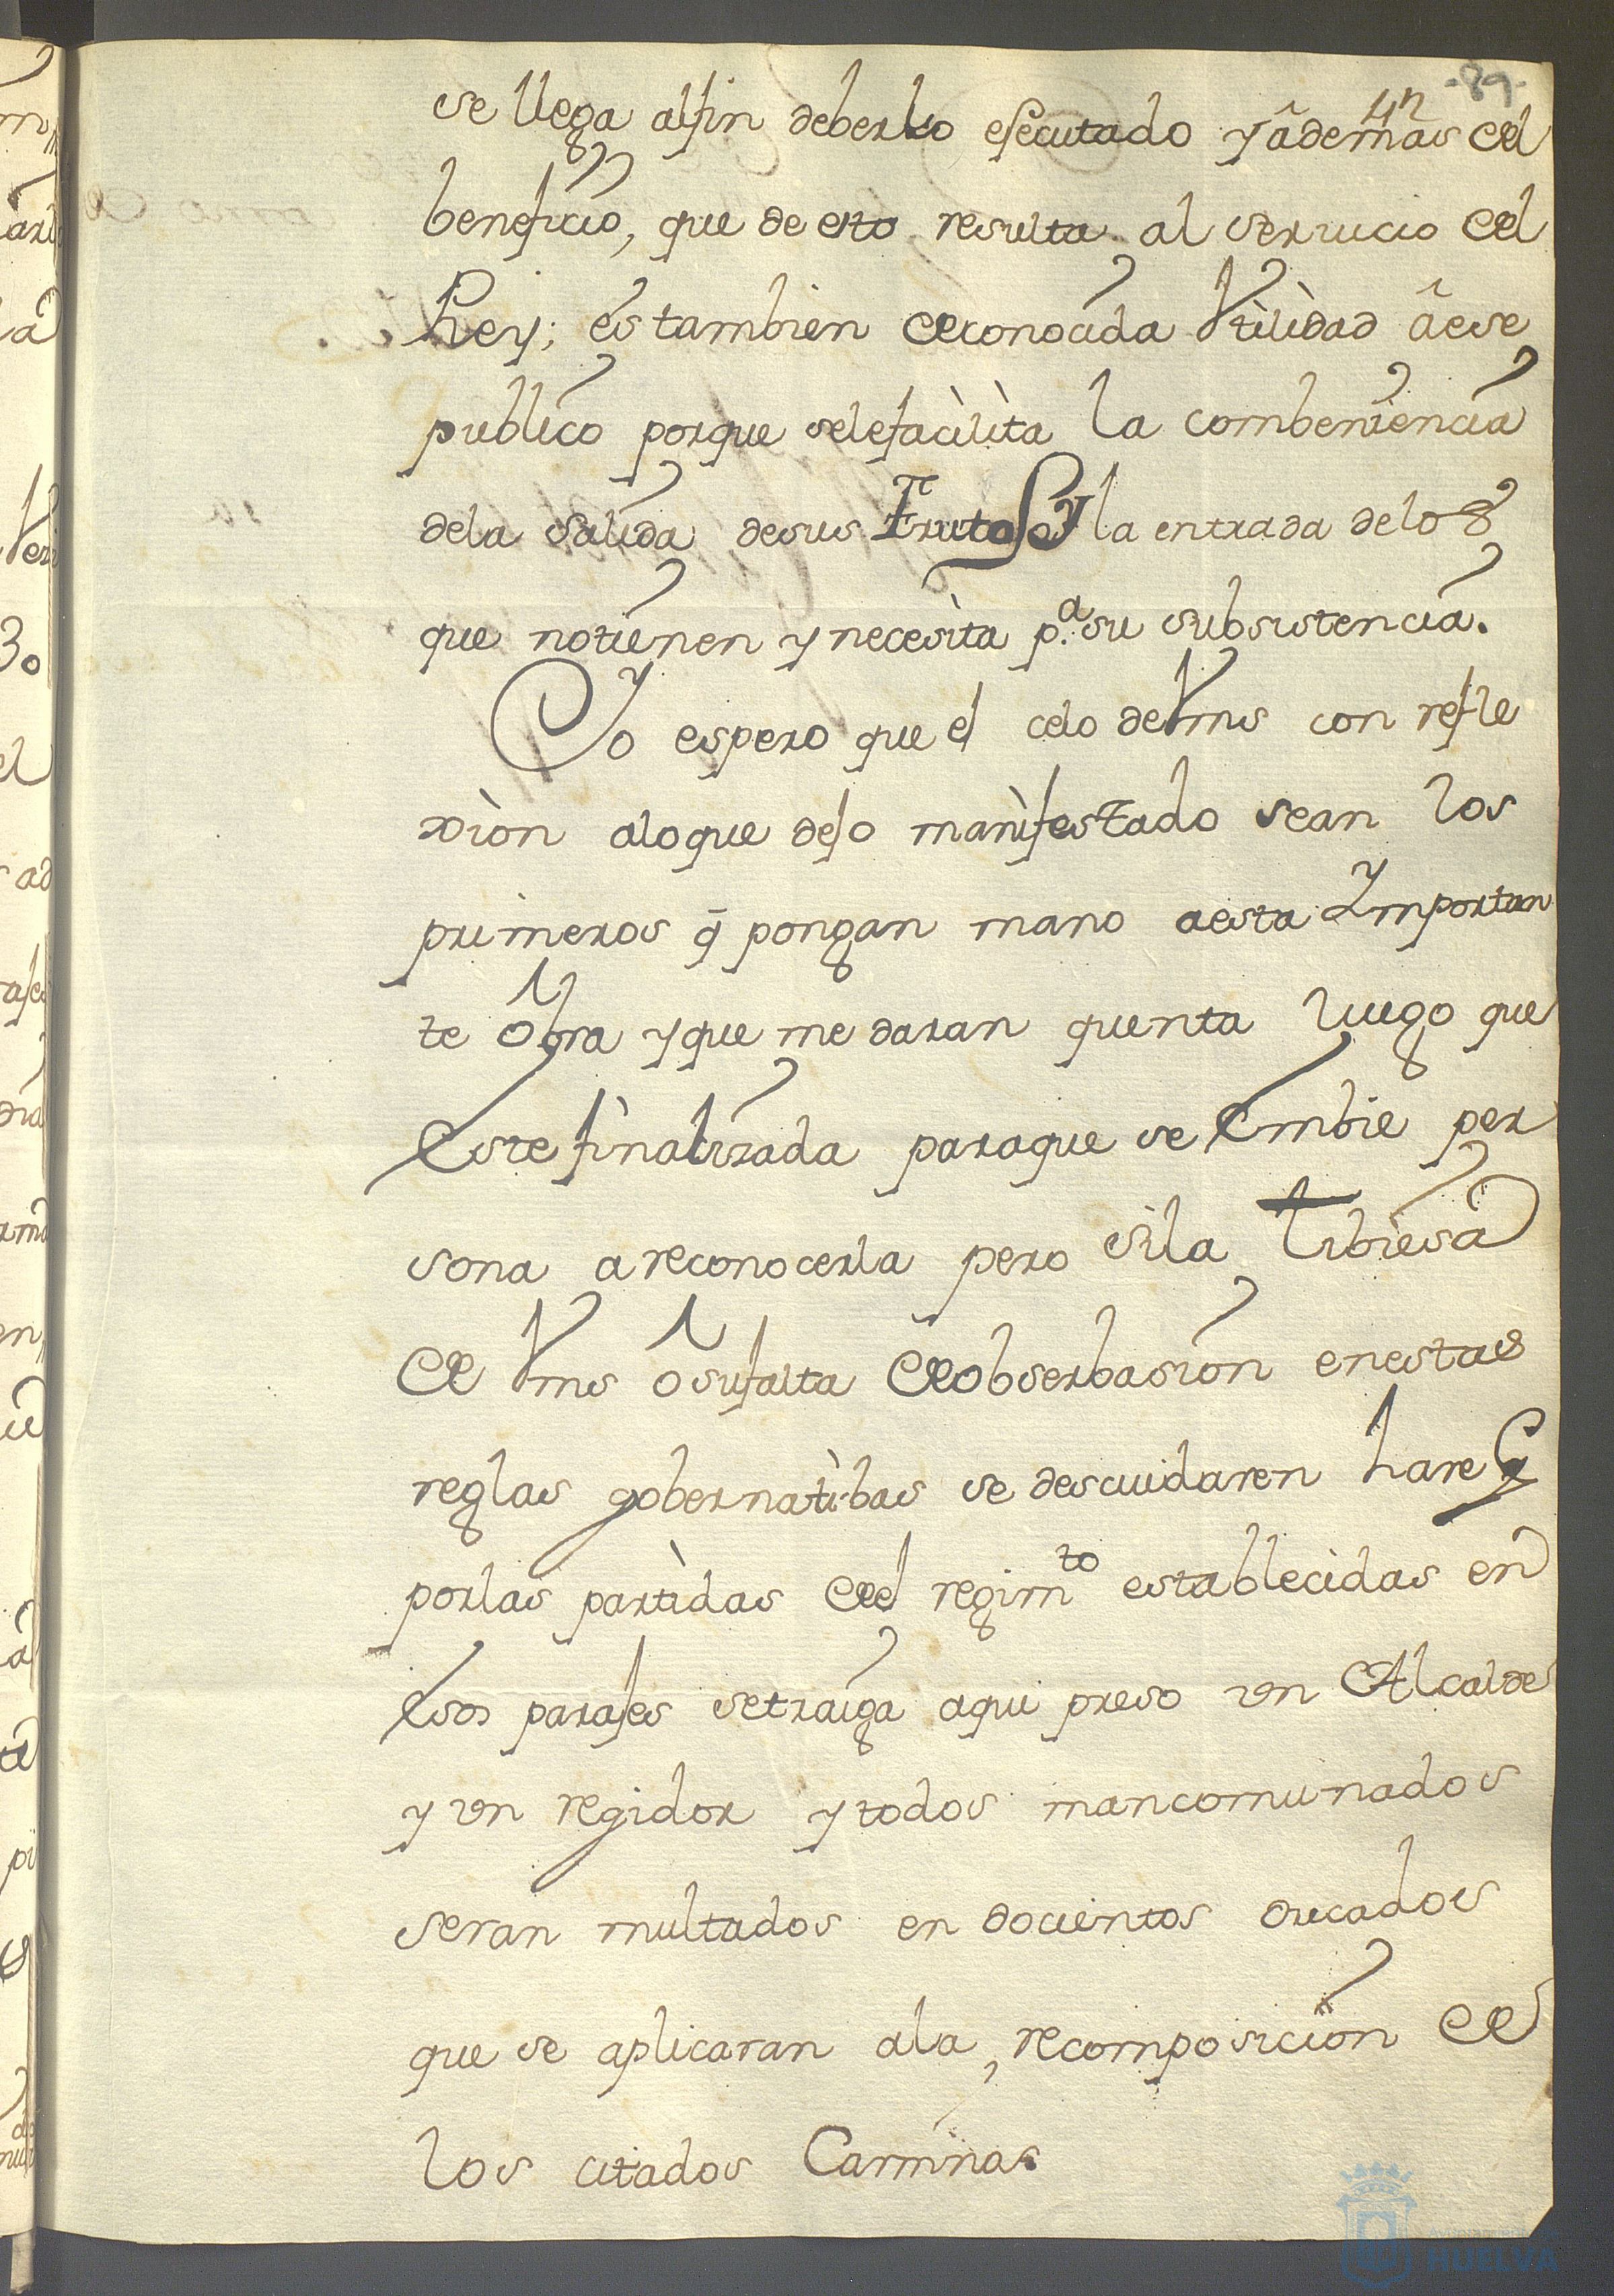 -89-
se llega alfin deberlo efecutado yâdemas del
beneficio, que de esto resulta al servicio del
Rey; és tambien deconocida Vtilidad âese
publico porque selefacilita la combeniencia
dela salida desus Frutos y la entrada delos
que notienen y necesita p.ª su subsistencia.
Yo espero que el celo deVms con refle
xion aloque dejo manifestado sean los
primeros q̄ pongan mano aesta Ymportan
te Obra yque me daran quenta luego que
Este finalizada paraque se Embie per
sona a reconocerla pero sila tibiesa
de Vms ô sufalta deobserbasion enestas
reglas gobernatibas se descuidaren hare q
porlas partidas del regim.to establecidas en
Esos parajes setraiga aqui preso vn Alcalde
y vn regidor y todos mancomunados
seran multados en docientos ducados
que se aplicaran ala recomposicion de
los citados Caminos
HUELVA